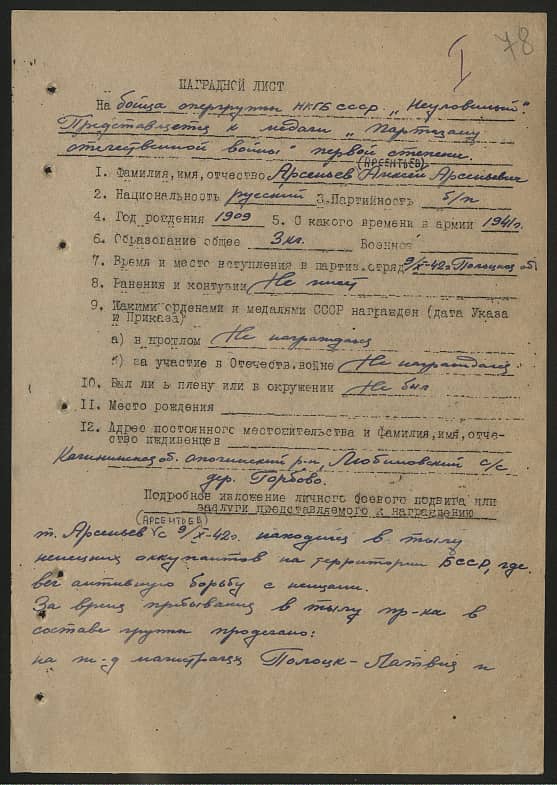 I
78
НАГРАДНОЙ ЛИСТ
На бойца опергруппы НКГБ СССР „Неуловимый".
Представляется к медали „Партизану
отечественной войны" первой степени.
(АРСЕНТЬЕВ)
1. Фамилия,имя,отчество Арсеньев Алексей Арсеньевич
2. Национальность русский 3.Партийность б/п
4. Год рождения 1909 5. С какого времени в армии 1941г.
6. Образование общее 3 кл. Военное
7. Время и место вступления в партиз.отряд 9/X-42г Полоцкая об.
8. Ранения и контузии Не имеет
9. Какими орденами и медалями СССР награжден (дата Указа
и Приказа)
а) в прошлом Не награждался
б) за участие в Отечеств.войне Не награждался
10. Был ли в плену или в окружении Не был
11. Место рождения
12. Адрес постоянного местожительства и фамилия,имя,отче-
ство иждивенцев
Калининская об. опочинский р-н, Любимовский с/с
дер. Горбово.
Подробное изложение личного боевого подвига или
заслуги представляемого к награждению
(АРСЕНТЬЕВ)
т. Арсеньев с 9/X-42г. находится в тылу
немецких оккупантов на территории БССР, где
вел активную борьбу с немцами.
За время пребывания в тылу пр-ка в
составе группы проделано:
на ж-д магистралях Полоцк-Латвия и